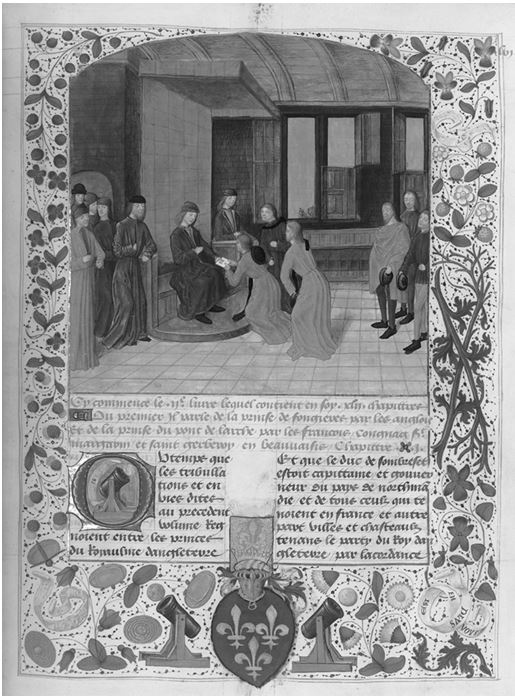 Cy commence le .vj.e livre lequel contient en soy .xlij. chapittres
Du premier Il parle de la prinse de fougieres par les anglois
Et de la prinse du pont de larche par les francois, congnac st.
margarin et saint gerberoy en beauvaisis. Chapittre
Ou temps que
les tribulla
tions et en
vies dites
au precedent
volume Reg
noient entre les princes
du Royaulme dangleterre
Et que le duc de sombreset
estoit capittaine et gouver
neur du pays de northma
die et de tous ceulx qui te
noient en france et autre
part villes et chasteaux
tenans le party du Roy dan
gleterre, par lacordance